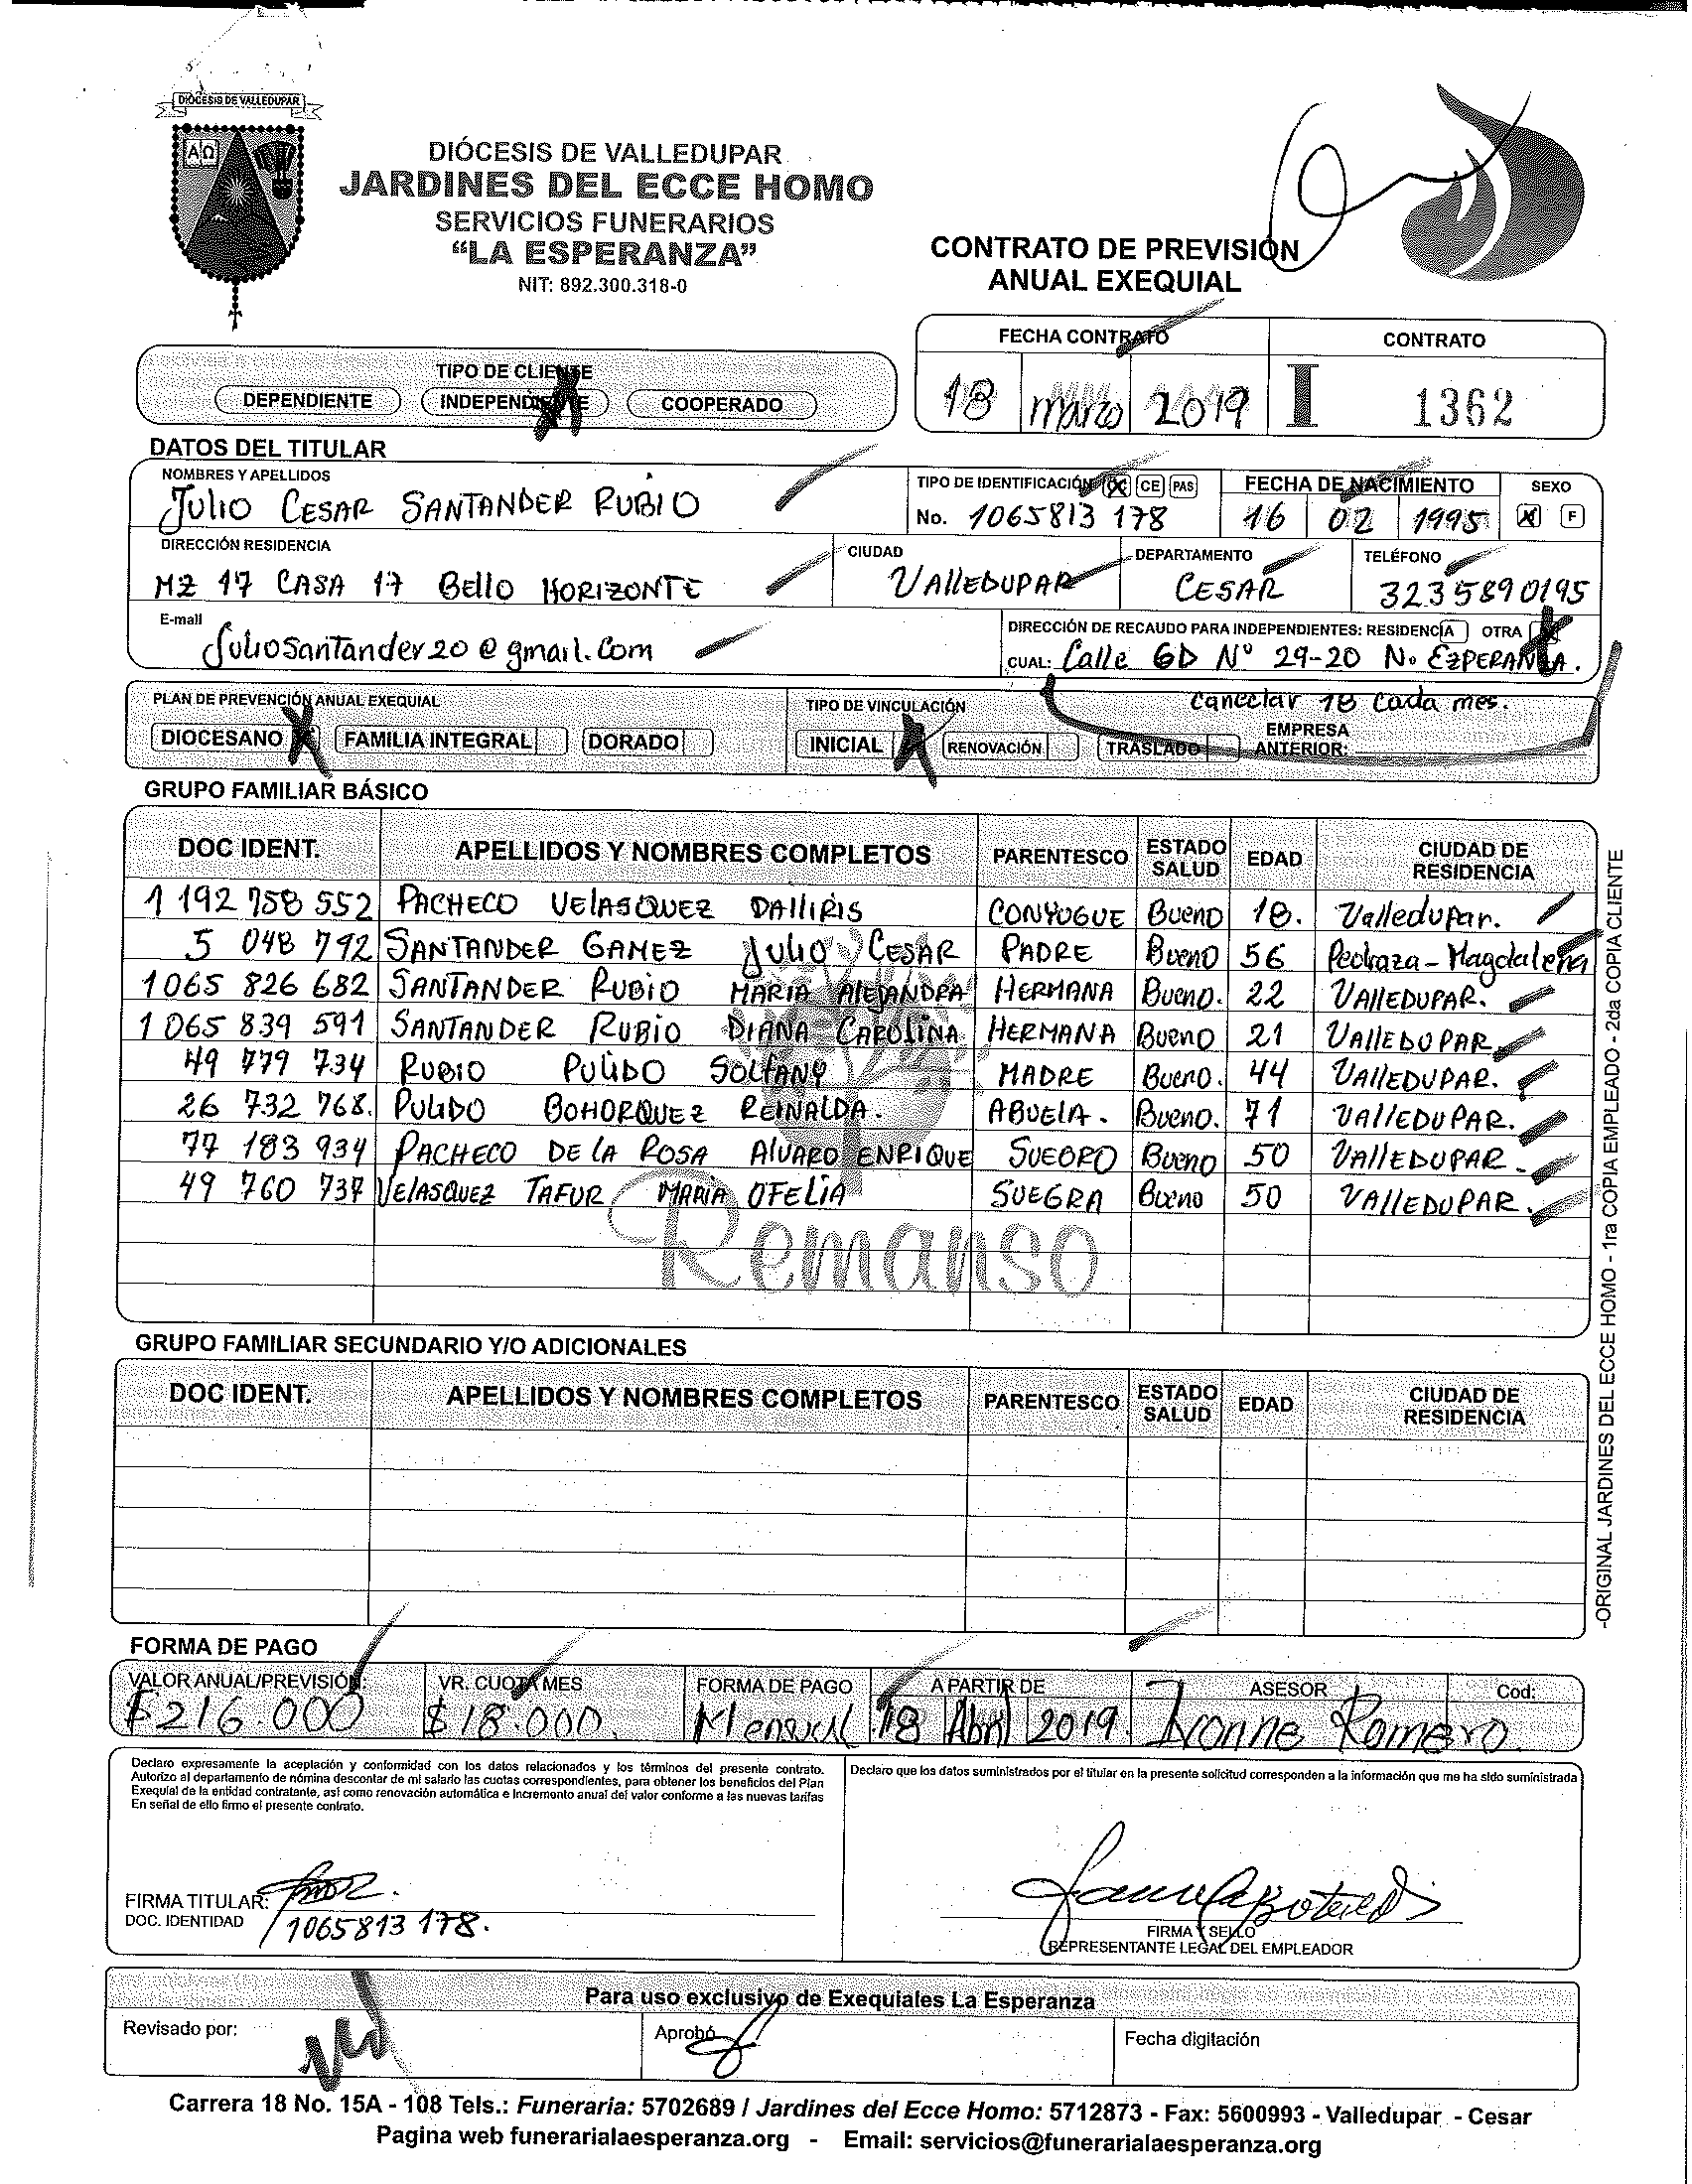 DIÓCESIS DE VALLEDUPAR
AΩ
DIÓCESIS DE VALLEDUPAR
JARDINES DEL ECCE HOMO
SERVICIOS FUNERARIOS
“LA ESPERANZA”
NIT: 892.300.318-0
CONTRATO DE PREVISIÓN
ANUAL EXEQUIAL
FECHA CONTRATO CONTRATO
18 marzo 2019 I 1362
TIPO DE CLIENTE
DEPENDIENTE INDEPENDIENTE X COOPERADO
DATOS DEL TITULAR
NOMBRES Y APELLIDOS TIPO DE IDENTIFICACIÓN CC CE PAS FECHA DE NACIMIENTO SEXO
Julio CESAR SANTANDER RUBIO No. 1065813 178 16 02 1995 X F
DIRECCIÓN RESIDENCIA CIUDAD DEPARTAMENTO TELÉFONO
MZ 17 CASA 17 Bello HORIZONTE VAllEDUPAR CESAR 3235890195
E-mail DIRECCIÓN DE RECAUDO PARA INDEPENDIENTES: RESIDENCIA OTRA X
JulioSantander20@gmail.Com CUAL: Calle 6D Nº 29-20 No EZPERANZA.
caneclar 18 cada mes.
PLAN DE PREVENCIÓN ANUAL EXEQUIAL TIPO DE VINCULACIÓN
DIOCESANO X FAMILIA INTEGRAL DORADO INICIAL X RENOVACIÓN TRASLADO EMPRESA ANTERIOR:
GRUPO FAMILIAR BÁSICO
DOC IDENT. APELLIDOS Y NOMBRES COMPLETOS PARENTESCO ESTADO SALUD EDAD CIUDAD DE RESIDENCIA
1 192 758 552 PACHECO VELASQUEZ DAlliRIS CONYUGUE BUENO 18. Valledupar.
5 048 792 SANTANDER GAMEZ Julio CESAR PADRE Bueno 56 Pedraza-Magdalena
1065 826 682 SANTANDER RUBIO MARIA ALEJANDRA HERMANA Bueno. 22 VAllEDUPAR.
1 065 839 591 SANTANDER RUBIO DIANA CAROLINA HERMANA Bueno 21 VAllEDUPAR
49 779 734 RUBIO PULIDO SOLFANY MADRE Bueno. 44 VAllEDUPAR.
26 732 768. PULIDO BOHORQUEZ REINALDA. ABUELA. Bueno. 71 VAllEDUPAR.
77 183 934 PACHECO DE LA ROSA AlVARO ENRIQUE SUEGRO Bueno 50 VAllEDUPAR.
49 760 737 VELASQUEZ TAFUR MARIA OFELIA SUEGRA Bueno 50 VAllEDUPAR.
Remanso
GRUPO FAMILIAR SECUNDARIO Y/O ADICIONALES
DOC IDENT. APELLIDOS Y NOMBRES COMPLETOS PARENTESCO ESTADO SALUD EDAD CIUDAD DE RESIDENCIA
FORMA DE PAGO
VALOR ANUAL/PREVISIÓN: VR. CUOTA MES FORMA DE PAGO A PARTIR DE ASESOR Cod:
$216.000 $18.000. Mensual 18 Abril 2019. Ivonne Romero
Declaro expresamente la aceptación y conformidad con los datos relacionados y los términos del presente contrato.
Autorizo al departamento de nómina descontar de mi salario las cuotas correspondientes, para obtener los beneficios del Plan
Exequial de la entidad contratante, así como renovación automática e incremento anual del valor conforme a las nuevas tarifas
En señal de ello firmo el presente contrato.
Declaro que los datos suministrados por el titular en la presente solicitud corresponden a la información que me ha sido suministrada
FIRMA TITULAR:
DOC. IDENTIDAD 1065813 178.
FIRMA Y SELLO
REPRESENTANTE LEGAL DEL EMPLEADOR
Para uso exclusivo de Exequiales La Esperanza
Revisado por: Aprobó Fecha digitación
Carrera 18 No. 15A - 108 Tels.: Funeraria: 5702689 / Jardines del Ecce Homo: 5712873 - Fax: 5600993 - Valledupar - Cesar
Pagina web funerarialaesperanza.org - Email: servicios@funerarialaesperanza.org
-ORIGINAL JARDINES DEL ECCE HOMO - 1ra COPIA EMPLEADO - 2da COPIA CLIENTE